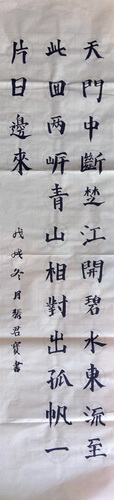 天門中斷楚江開碧水東流至
此回兩岍青山相對出孤帆一
片日邊來
戊戌冬月 君寶書